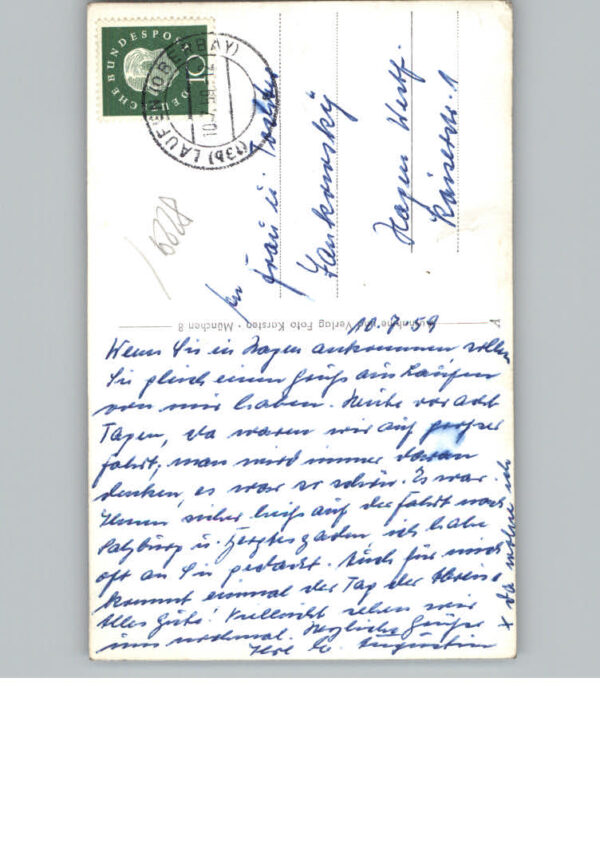 DEUTSCHE BUNDESPOST
10
(13b) LAUFEN (OBERBAY)
10.7.59
An
Frau u. Tochter
Jankowsky
Hagen Westf.
Kaiserstr. 1
Verlag Foto Karsten · München 8
10.7.59
Wenn Sie in Hagen ankommen sollen
Sie gleich einen Gruß aus Laufen
von mir haben. Heute vor acht
Tagen, da waren wir auf großer
Fahrt, man wird immer daran
denken, es war so schön. Es war
Ihnen sicher heiß auf der Fahrt nach
Salzburg u. Berchtesgaden, ich habe
oft an Sie gedacht. Auch für mich
kommt einmal der Tag der Abreise
Alles Gute! Vielleicht sehen wir
uns nochmal. Herzliche Grüße
Ihre Augustin
x da wohne ich